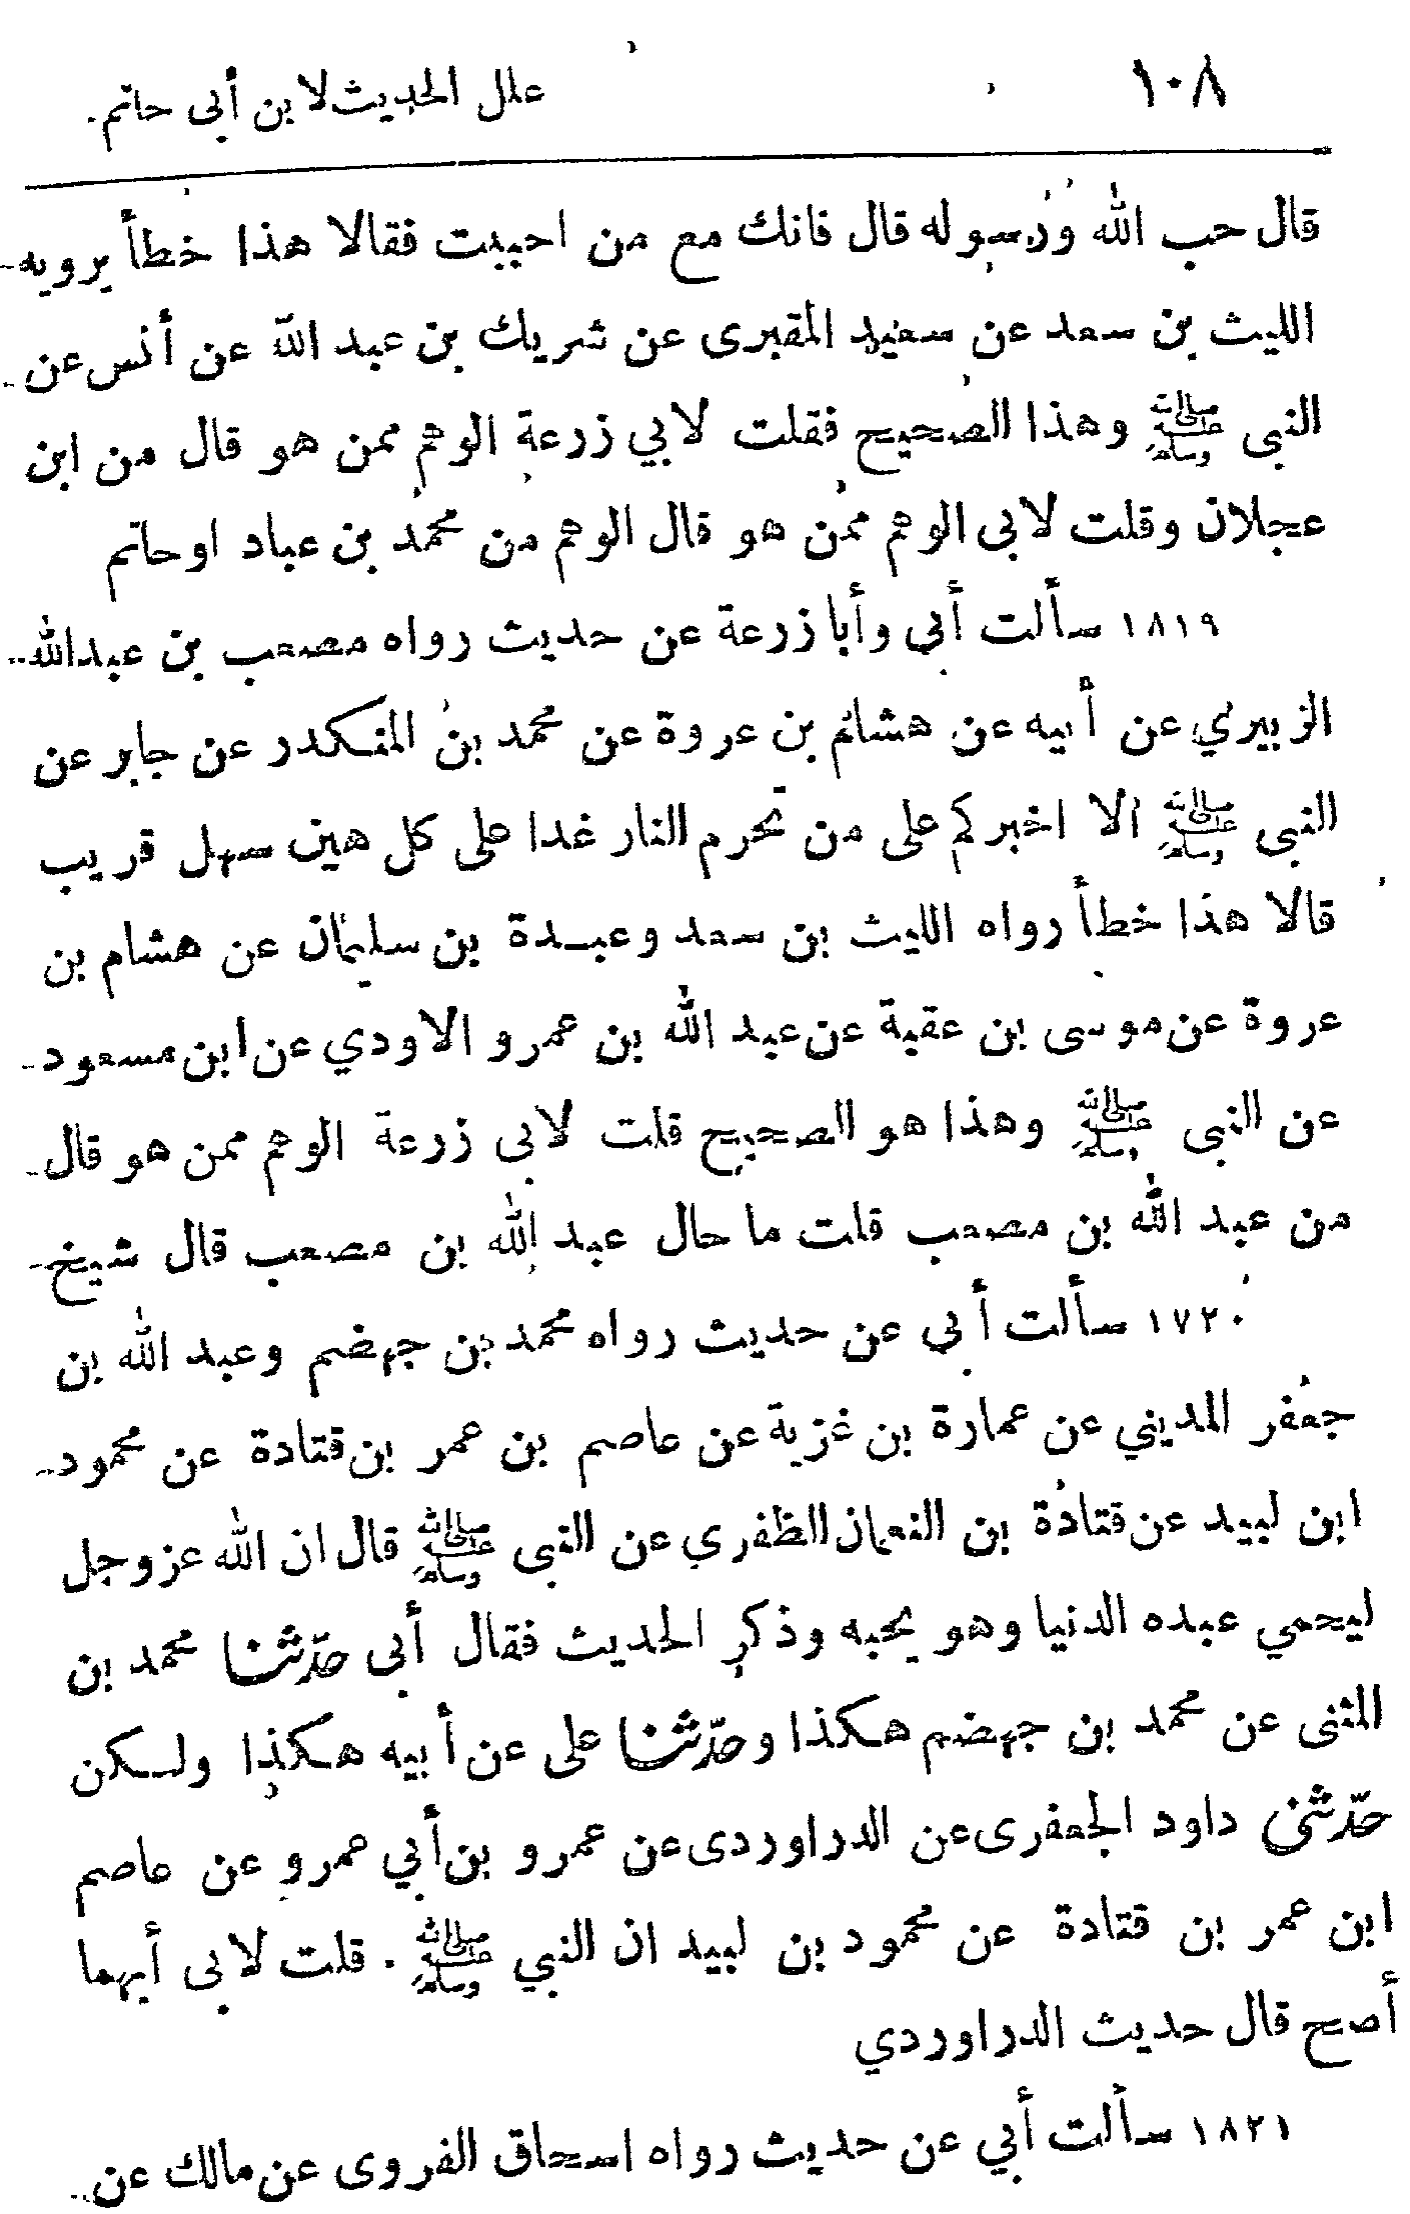 ١٠٨ علل الحديث لابن أبى حاتم.
قال حب الله ورسوله قال فانك مع من احببت فقالا هذا خطأ يرويه
الليث بن سعد عن سعيد المقبرى عن شريك بن عبد الله عن أنس عن
النبى ﷺ وهذا الصحيح فقلت لابي زرعة الوهم ممن هو قال من ابن
عجلان وقلت لابى الوهم ممن هو قال الوهم من محمد بن عباد او حاتم
١٨١٩ سألت أبي وأبا زرعة عن حديث رواه مصعب بن عبد الله
الزبيري عن أبيه عن هشام بن عروة عن محمد بن المنكدر عن جابر عن
النبى ﷺ الا اخبركم على من تحرم النار غدا على كل هين سهل قريب
قالا هذا خطأ رواه الليث بن سعد وعبدة بن سليمان عن هشام بن
عروة عن موسى بن عقبة عن عبد الله بن عمرو الاودي عن ابن مسعود
عن النبى ﷺ وهذا هو الصحيح قلت لابى زرعة الوهم ممن هو قال
من عبد الله بن مصعب قلت ما حال عبد الله بن مصعب قال شيخ
١٧٢٠ سألت أبي عن حديث رواه محمد بن جهضم وعبد الله بن
جعفر المديني عن عمارة بن غزية عن عاصم بن عمر بن قتادة عن محمود
ابن لبيد عن قتادة بن النعمان الظفري عن النبى ﷺ قال ان الله عز وجل
ليحمي عبده الدنيا وهو يحبه وذكر الحديث فقال أبى حدّثنا محمد بن
المثنى عن محمد بن جهضم هكذا وحدّثنا على عن أبيه هكذا ولكن
حدّثنى داود الجعفرى عن الدراوردى عن عمرو بن أبي عمرو عن عاصم
ابن عمر بن قتادة عن محمود بن لبيد ان النبي ﷺ . قلت لابى أيهما
أصح قال حديث الدراوردي
١٨٢١ سألت أبي عن حديث رواه اسحاق الفروى عن مالك عن